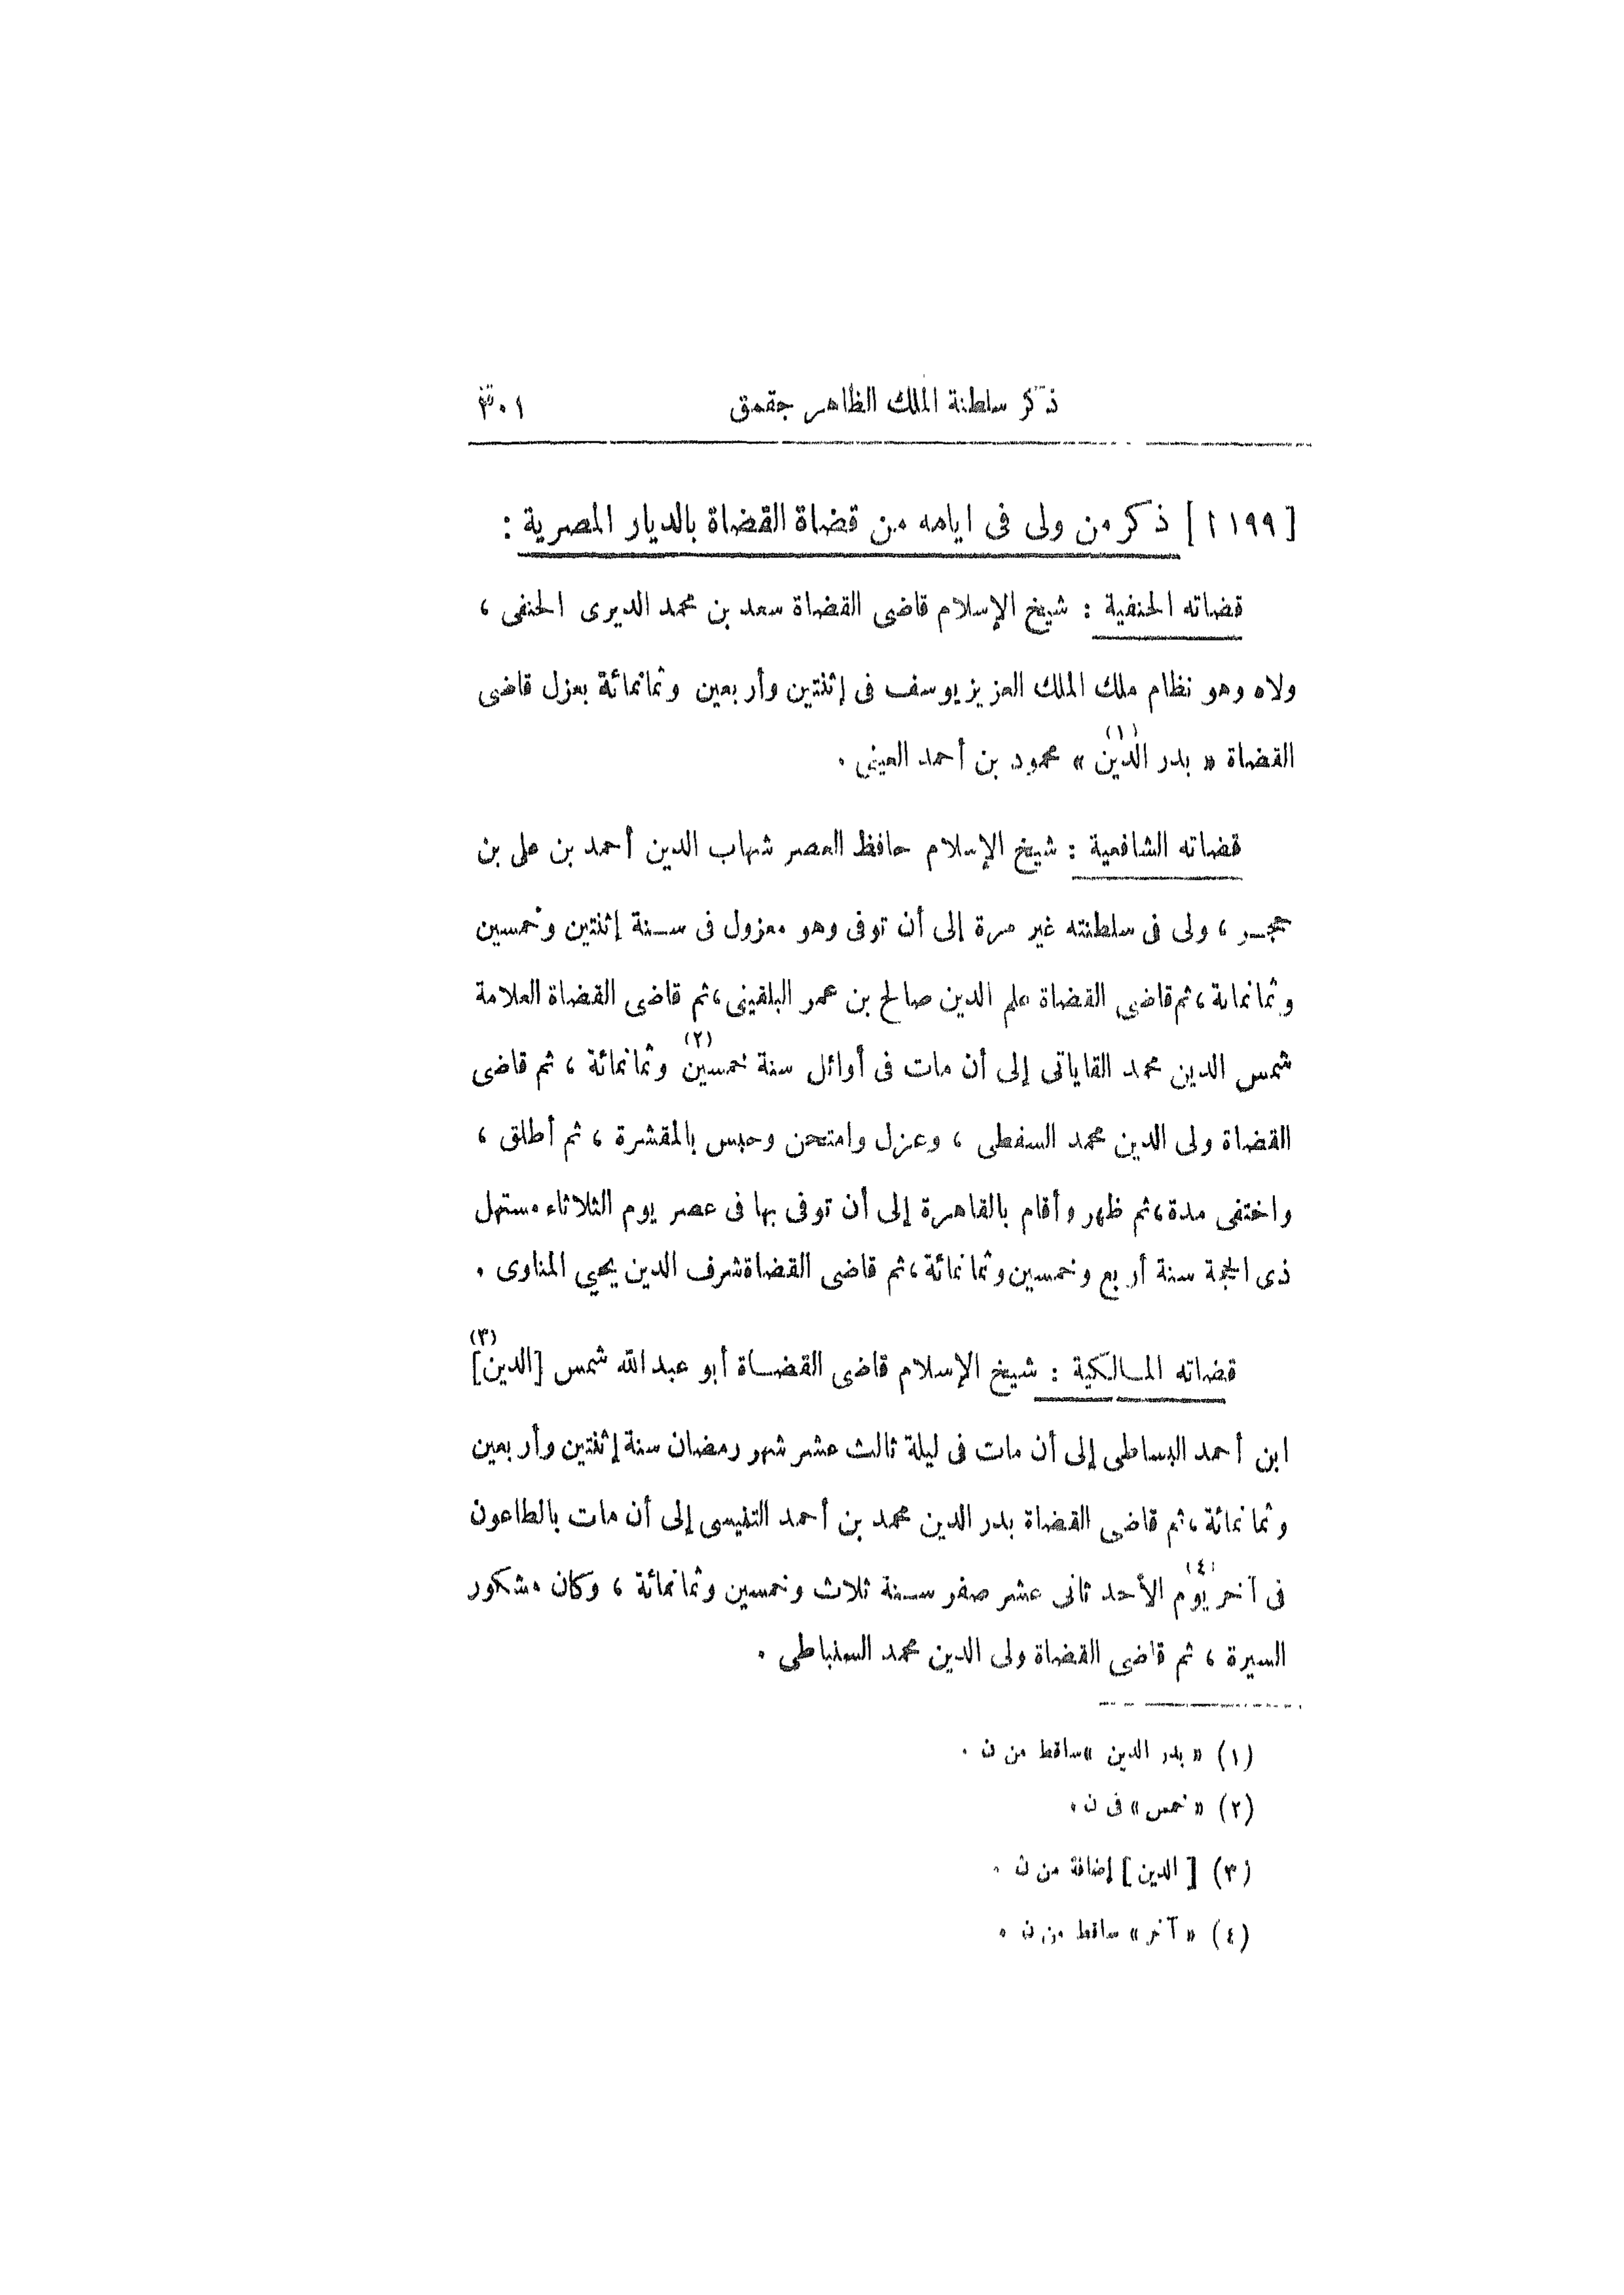 ذكر سلطنة الملك الظاهر جقمق ٣٠١
[١٩٩ أ] ذكر من ولى فى ايامه من قضاة القضاة بالديار المصرية :
قضاته الحنفية : شيخ الإسلام قاضى القضاة سعد بن محمد الديرى الحنفى ،
ولاه وهو نظام ملك الملك العزيز يوسف فى إثنتين وأربعين وثمانمائة بعزل قاضى
القضاة « بدر الدين (١) » محمود بن أحمد العينى .
قضاته الشافعية : شيخ الإسلام حافظ العصر شهاب الدين أحمد بن على بن
حجر ، ولى فى سلطنته غير مرة إلى أن توفى وهو معزول فى سنة إثنتين وخمسين
وثمانماية ، ثم قاضى القضاة علم الدين صالح بن عمر البلقينى ، ثم قاضى القضاة العلامة
شمس الدين محمد القاياتى إلى أن مات فى أوائل سنة خمسين (٢) وثمانمائة ، ثم قاضى
القضاة ولى الدين محمد السفطى ، وعزل وامتحن وحبس بالمقشرة ، ثم أطلق ،
واختفى مدة ، ثم ظهر وأقام بالقاهرة إلى أن توفى بها فى عصر يوم الثلاثاء مستهل
ذى الحجة سنة أربع وخمسين وثمانمائة ، ثم قاضى القضاة شرف الدين يحيي المناوى .
قضاته المالكية : شيخ الإسلام قاضى القضاة أبو عبد الله شمس [الدين] (٣)
ابن أحمد البساطى إلى أن مات فى ليلة ثالث عشر شهر رمضان سنة إثنتين وأربعين
وثمانمائة ، ثم قاضى القضاة بدر الدين محمد بن أحمد التنيسى إلى أن مات بالطاعون
فى آخر (٤) يوم الأحد ثانى عشر صفر سنة ثلاث وخمسين وثمانمائة ، وكان مشكور
السيرة ، ثم قاضى القضاة ولى الدين محمد السنباطى .
(١) « بدر الدين » ساقط من ن .
(٢) « خمس » فى ن .
(٣) [ الدين ] إضافة من ن .
(٤) « آخر » ساقط من ن .